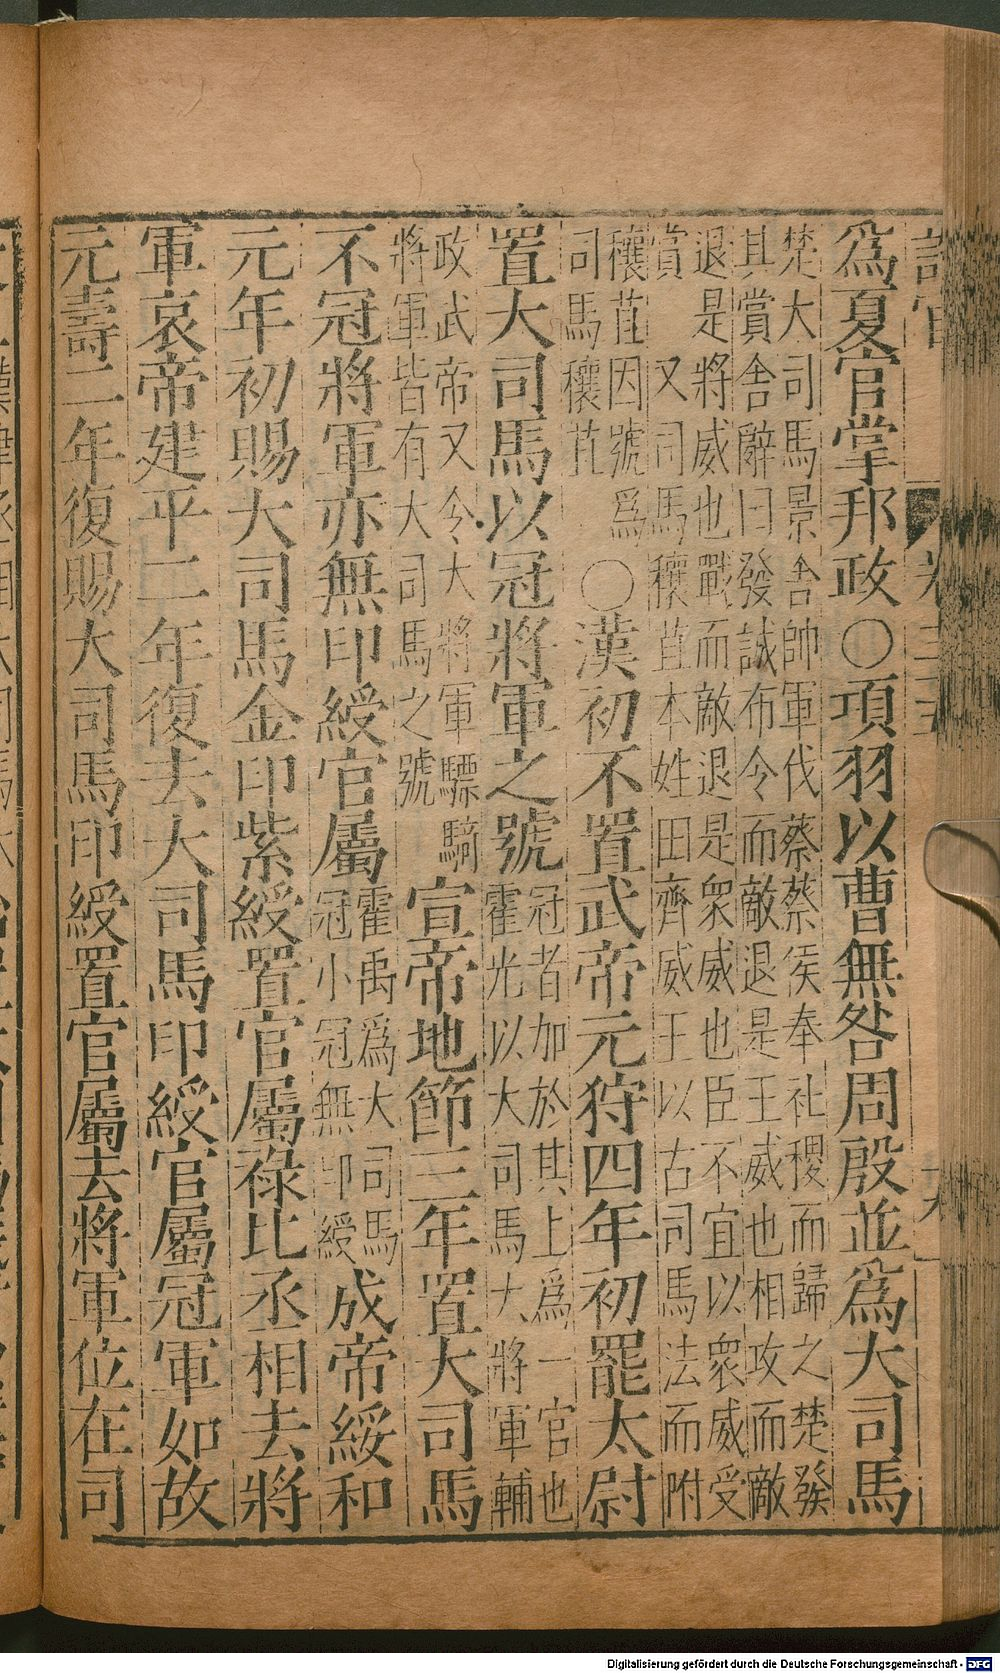 爲夏官掌邦政〇項羽以曹無咎周殷並爲大司馬
楚大司馬景舍帥軍伐蔡蔡侯奉社稷而歸之楚發
其賞舍辭曰發誠布令而敵退是王威也相攻而敵
退是將威也戰而敵退是衆威也臣不宜以衆威受
賞 又司馬穰苴本姓田齊威王以古司馬法而附
穰苴因號爲
司馬穰苴
〇漢初不置武帝元狩四年初罷太尉
置大司馬以冠將軍之號
冠者加於其上爲一官也
霍光以大司馬大將軍輔
政武帝又令大將軍驃騎
將軍皆有大司馬之號
宣帝地節三年置大司馬
不冠將軍亦無印綬官屬
霍禹爲大司馬
冠小冠無印綬
成帝綏和
元年初賜大司馬金印紫綬置官屬祿比丞相去將
軍哀帝建平二年復去大司馬印綬官屬冠軍如故
元壽二年復賜大司馬印綬置官屬去將軍位在司
Digitalisierung gefördert durch die Deutsche Forschungsgemeinschaft - DFG